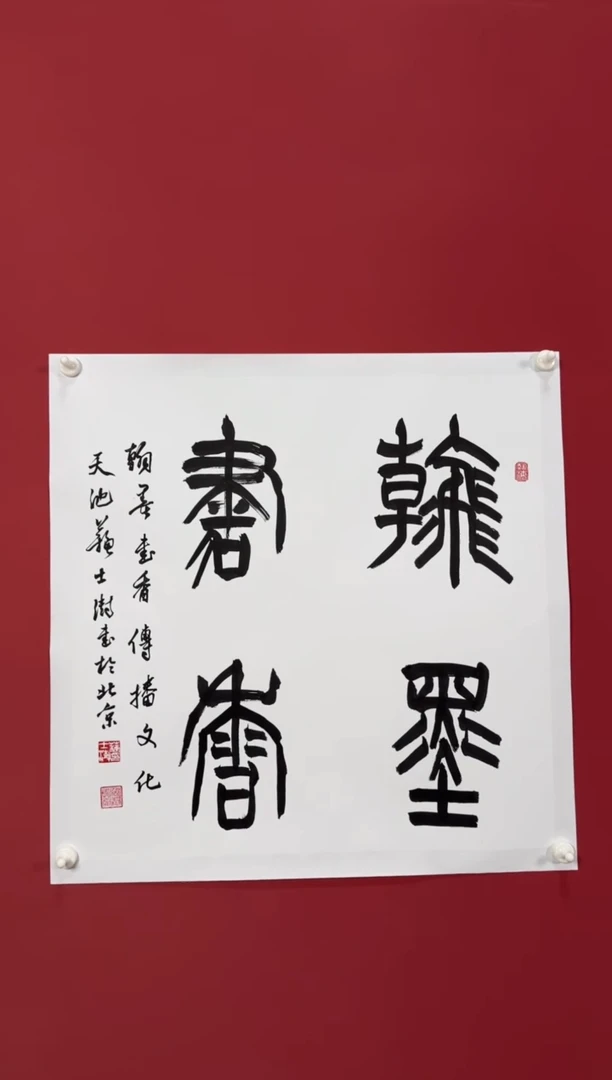 翰墨
書香
翰墨書香傳播文化
天池蘇士澍書於北京